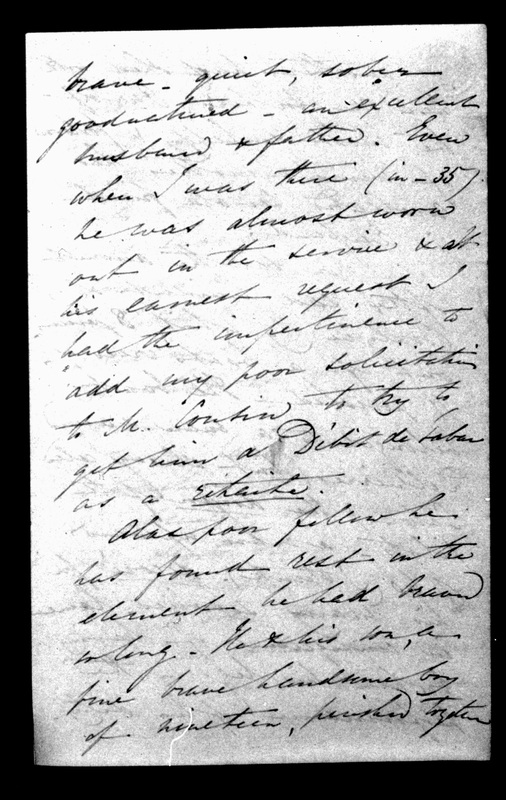 brave - quiet, sober
goodnatured - an excellent
husband & father. Even
when I was there (in - 35)
he was almost worn
out in the service & at
his earnest request I
had the impertinence to
add my poor solicitation
to M. Cousin to try to
get him a Débit de tabac
as a retraite.
Alas poor fellow he
has found rest in the
element he had braved
so long - He & his son, a
fine brave handsome boy
of nineteen, perished together